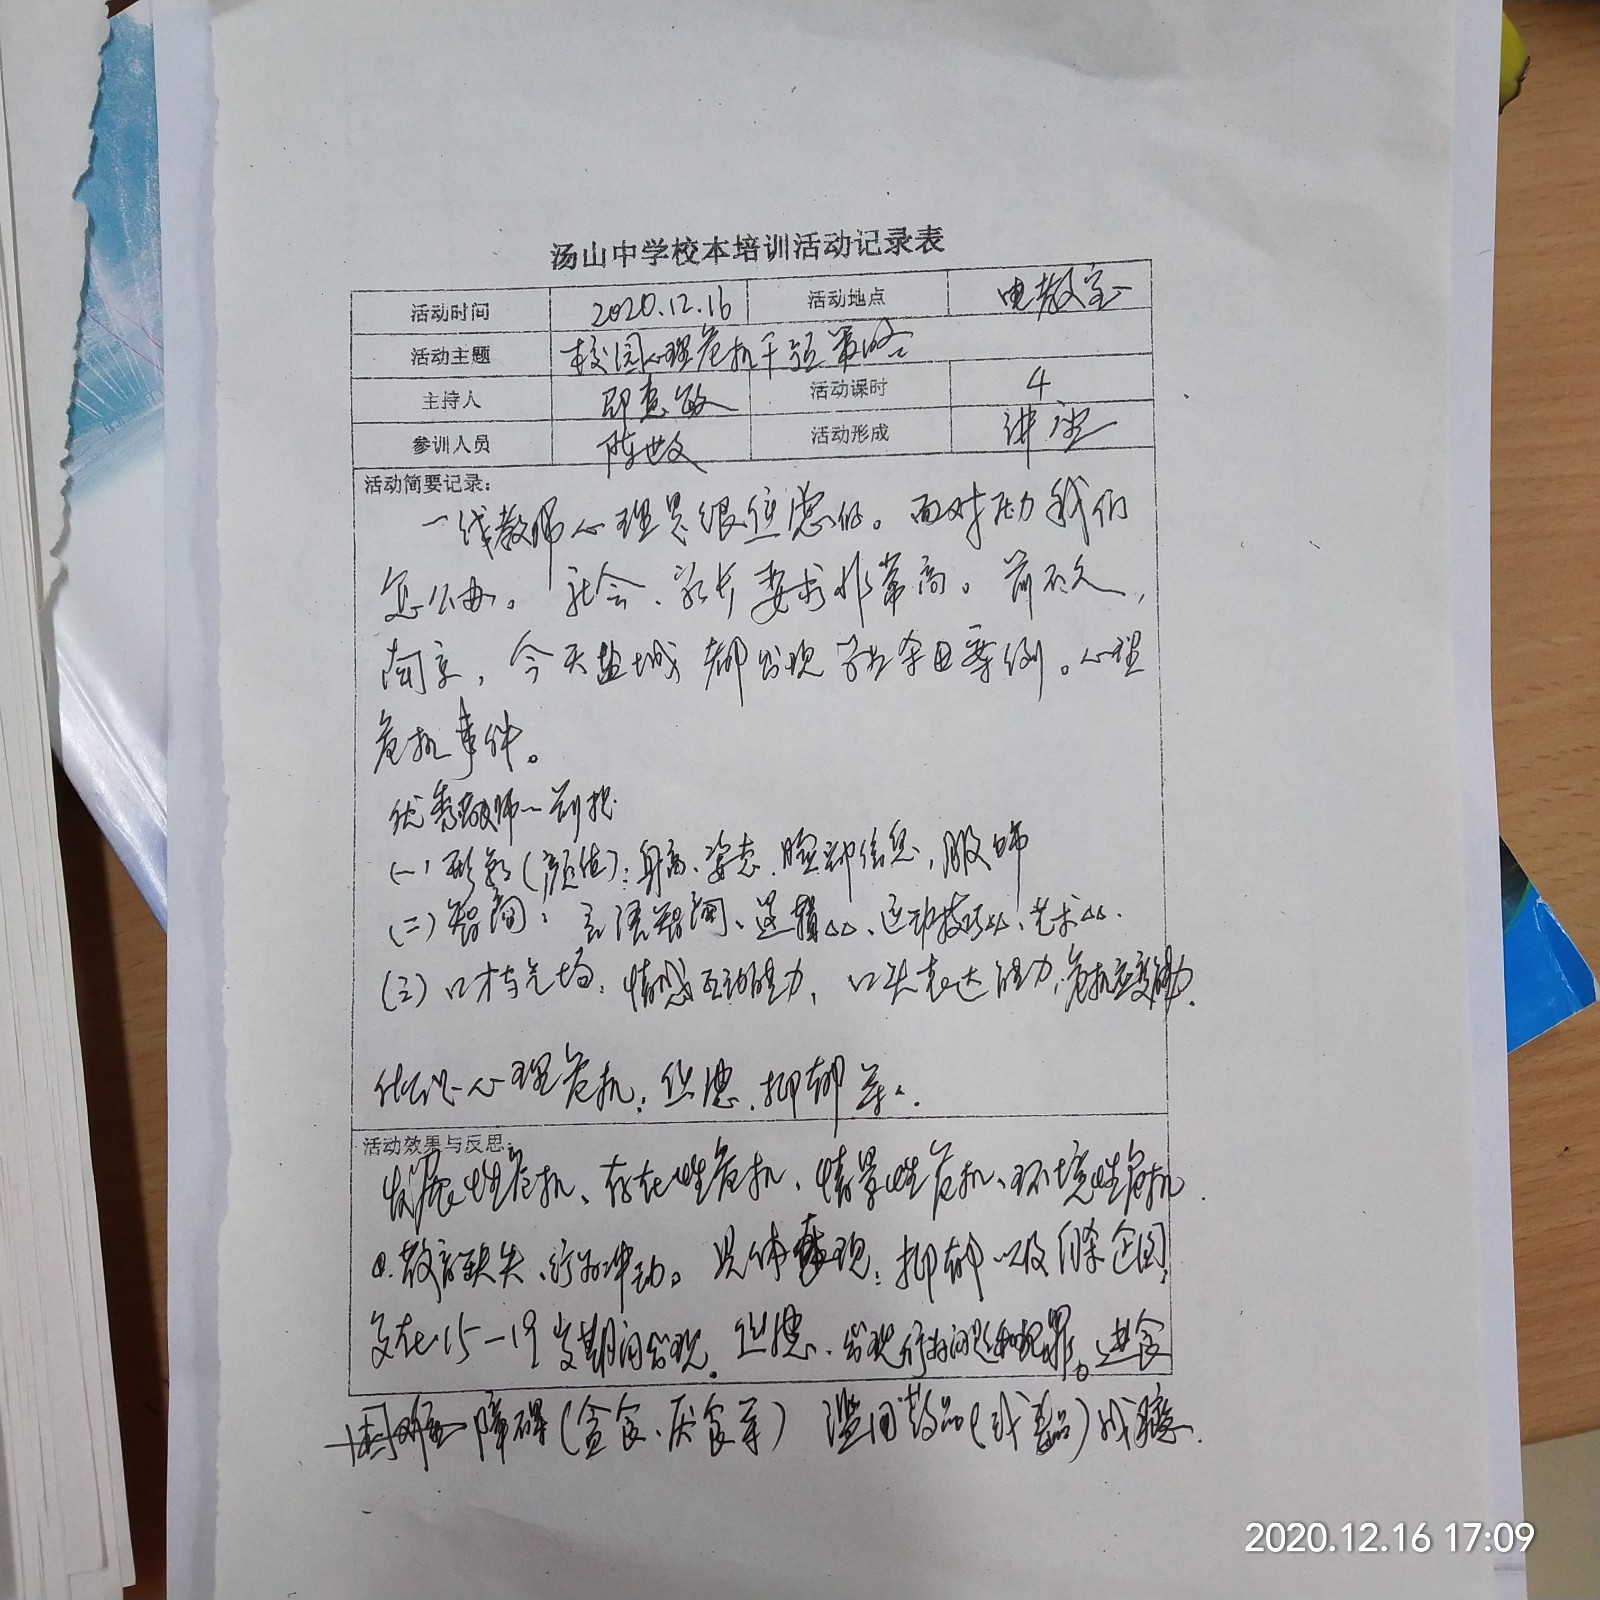 汤山中学校本培训活动记录表
活动时间 2020.12.16 活动地点 电教室一
活动主题 校园心理危机干预策略
主持人 敏 活动课时 4
参训人员 陈世文 活动形成 讲座
活动简要记录：
一线教师心理是很焦虑的。面对压力我们
怎么办。社会、家长要求非常高。前不久，
南京，今天盐城都出现学生案例。心理
危机事件。
优秀教师
(一)形象(颜值)：身高、姿态、脸部信息，服饰
(二)智商：言语智商、逻辑△△、运动技巧△△、艺术△△.
(三)口才与气场：情感互动能力，口头表达能力，危机应变能力.
什么心理危机：焦虑、抑郁等.
活动效果与反思：
发展性危机、存在性危机、情景性危机、环境性危机.
教育缺失、行为冲动。具体表现：抑郁以及自杀企图，
多在15-19岁期间出现。焦虑、出现行为问题和犯罪。进食
困难障碍(贪食、厌食等) 滥用药品(或毒品)成瘾.
2020.12.16 17:09